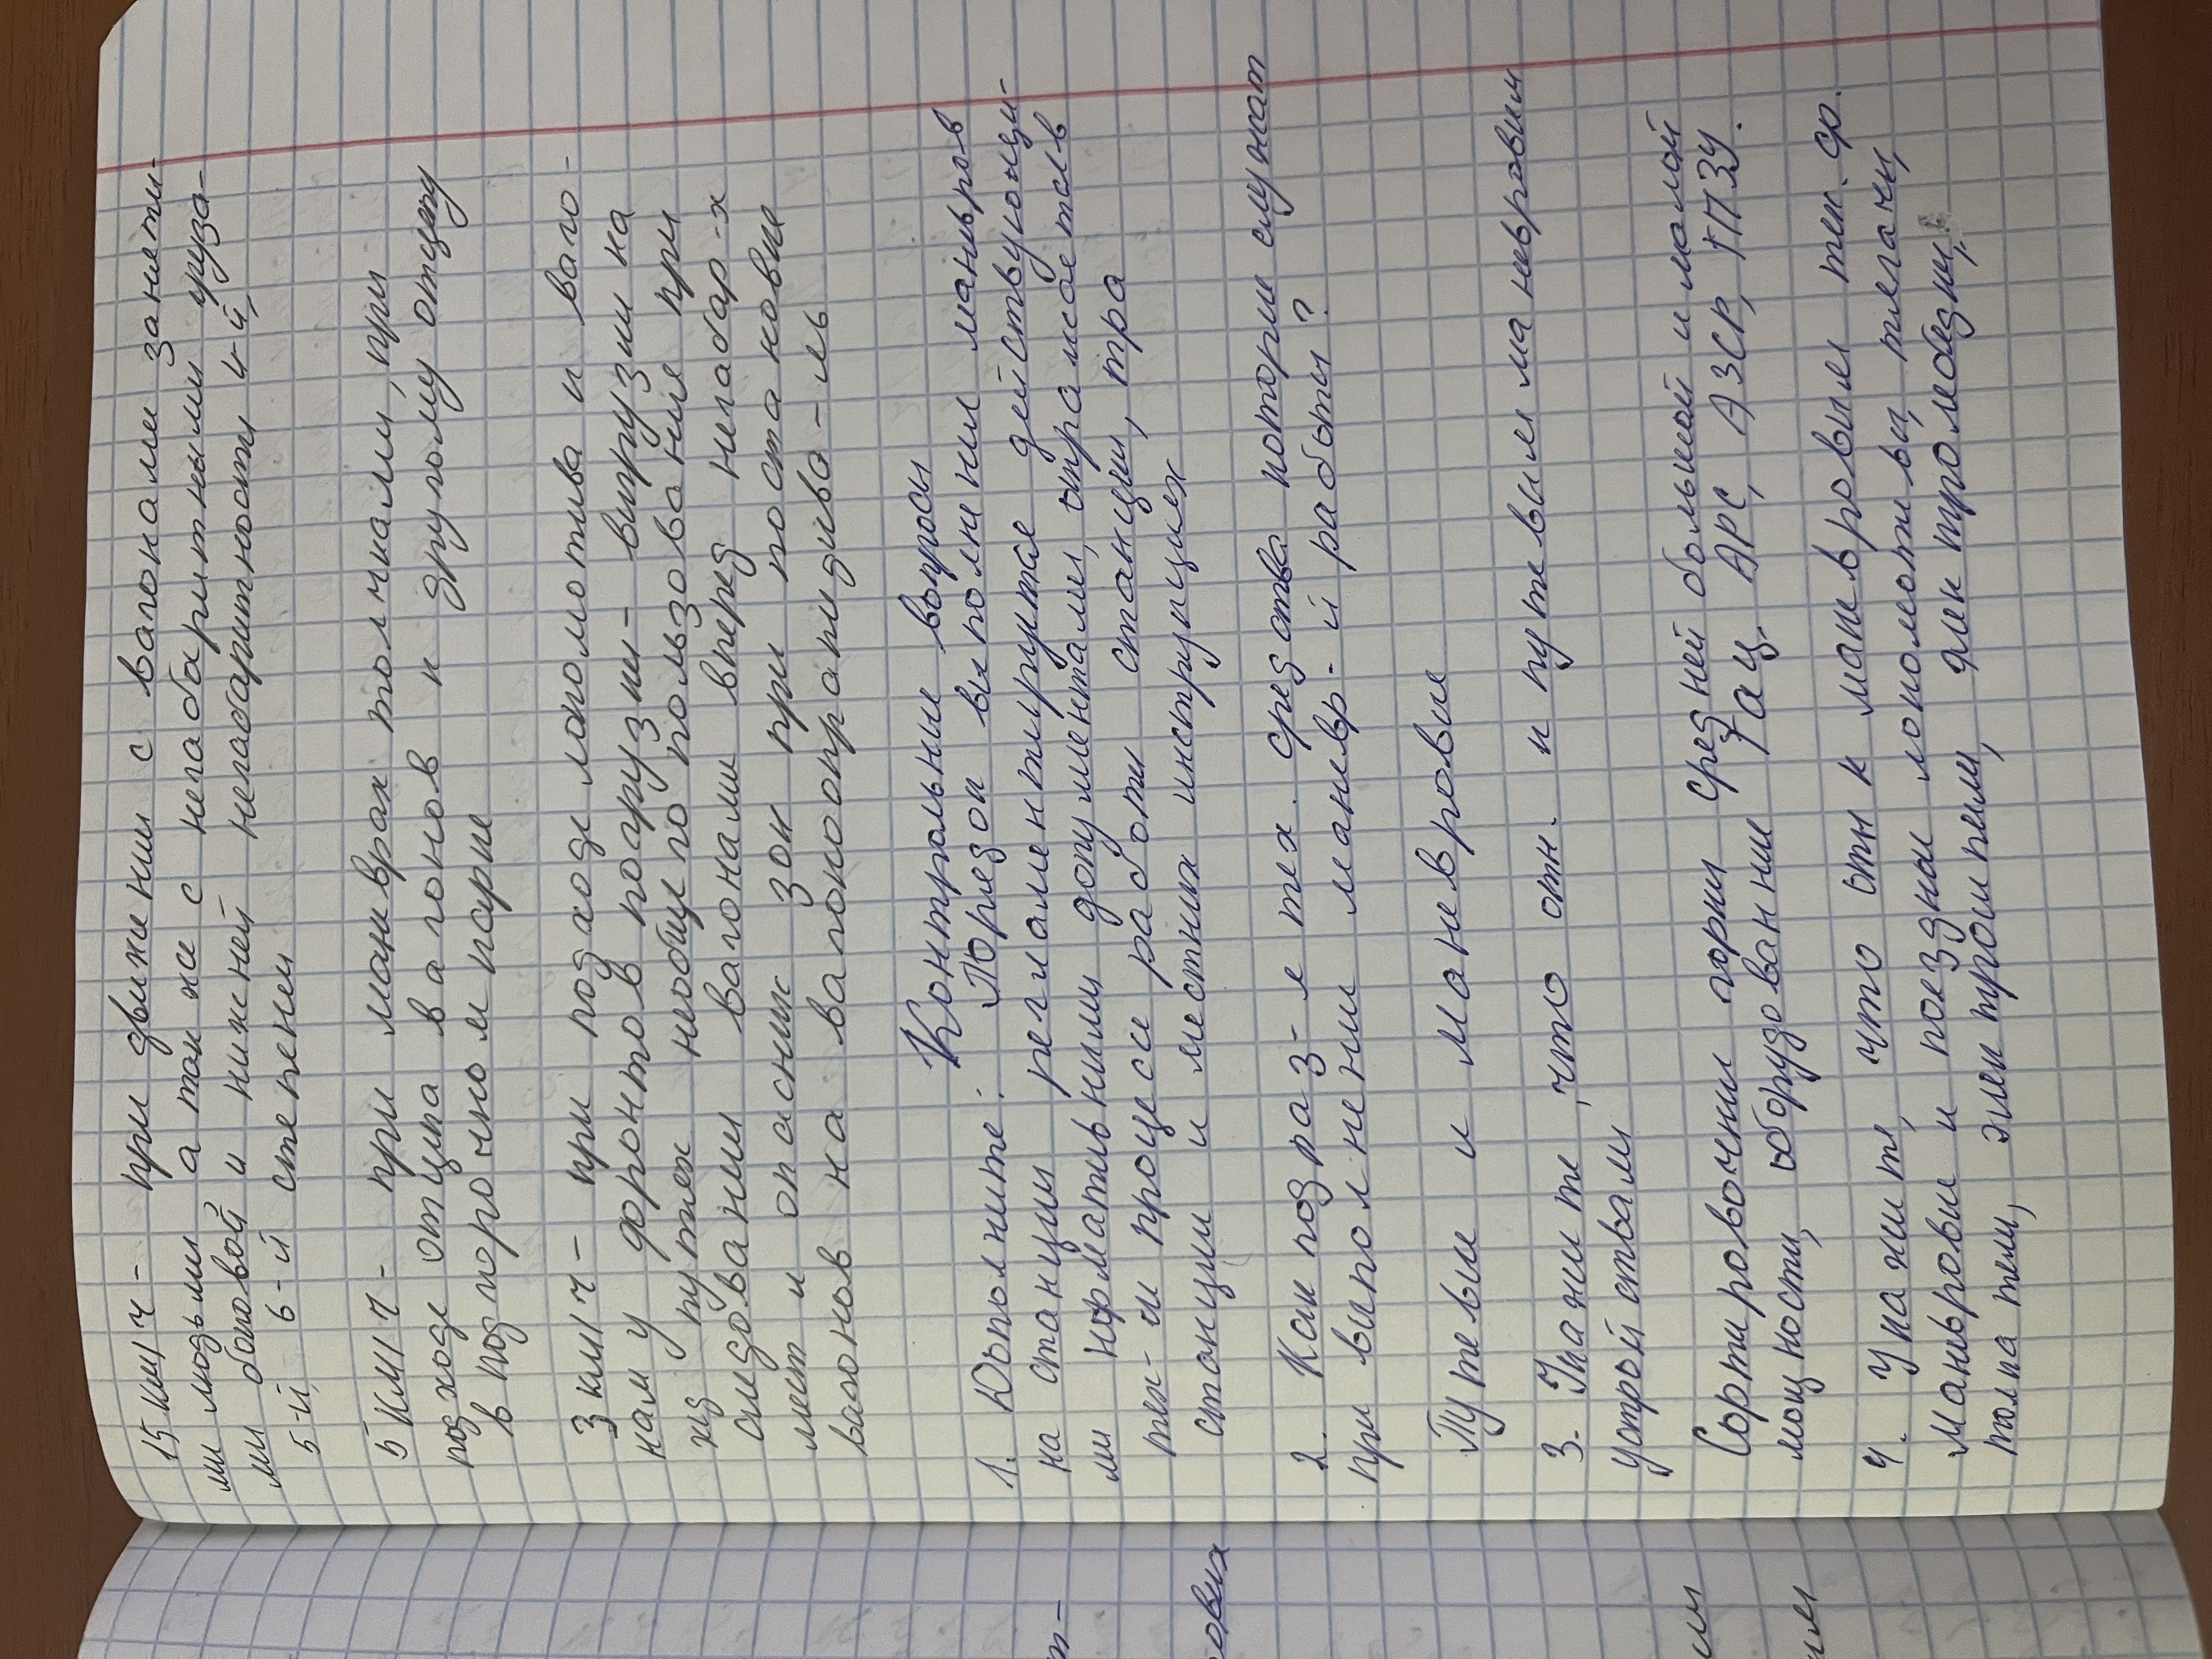 15 км/ч - при движении с вагонами заняти-
ми людьми а так же с негабаритными груза-
ми боковой и нижней негабаритности 4-й,
5-й, 6-й степени
5 КМ/ч - при маневрах толчками, при
подходе отцепа вагонов к другому отцепу
в подгорочном парке
3 км/ч - при подходе локомотива к ваго-
нам у фронтов погрузки - выгрузки на
х путех необще по пользования при
следовании вагонами вперед негабар-х
мест и опасних зон при постановки
вагонов на вагоноопракидыва-ль
Контрольние вопроси
1. Дополните: „Порядок выполнения маневров
на станции регламентируктся действующи-
ми нормативними документами, отражается в
тех- м процесе работи станции, тра
станции и местних инструкциях
2. Как подраз-я тех. средства которие служат
при виполнении маневр- й работы?
Путевые и маневровие
3. Укажите, что отн. к путевым маневровим
устройствам
Сортировочнии горки средней большой и малой
мощности, оборудовании Гац. АРС, АЗСР, ТПЗУ.
4. Укажит, что отн к маневровым тех. ср.
Маневрови и поездные локомотивы, тягачи,
толкатели,